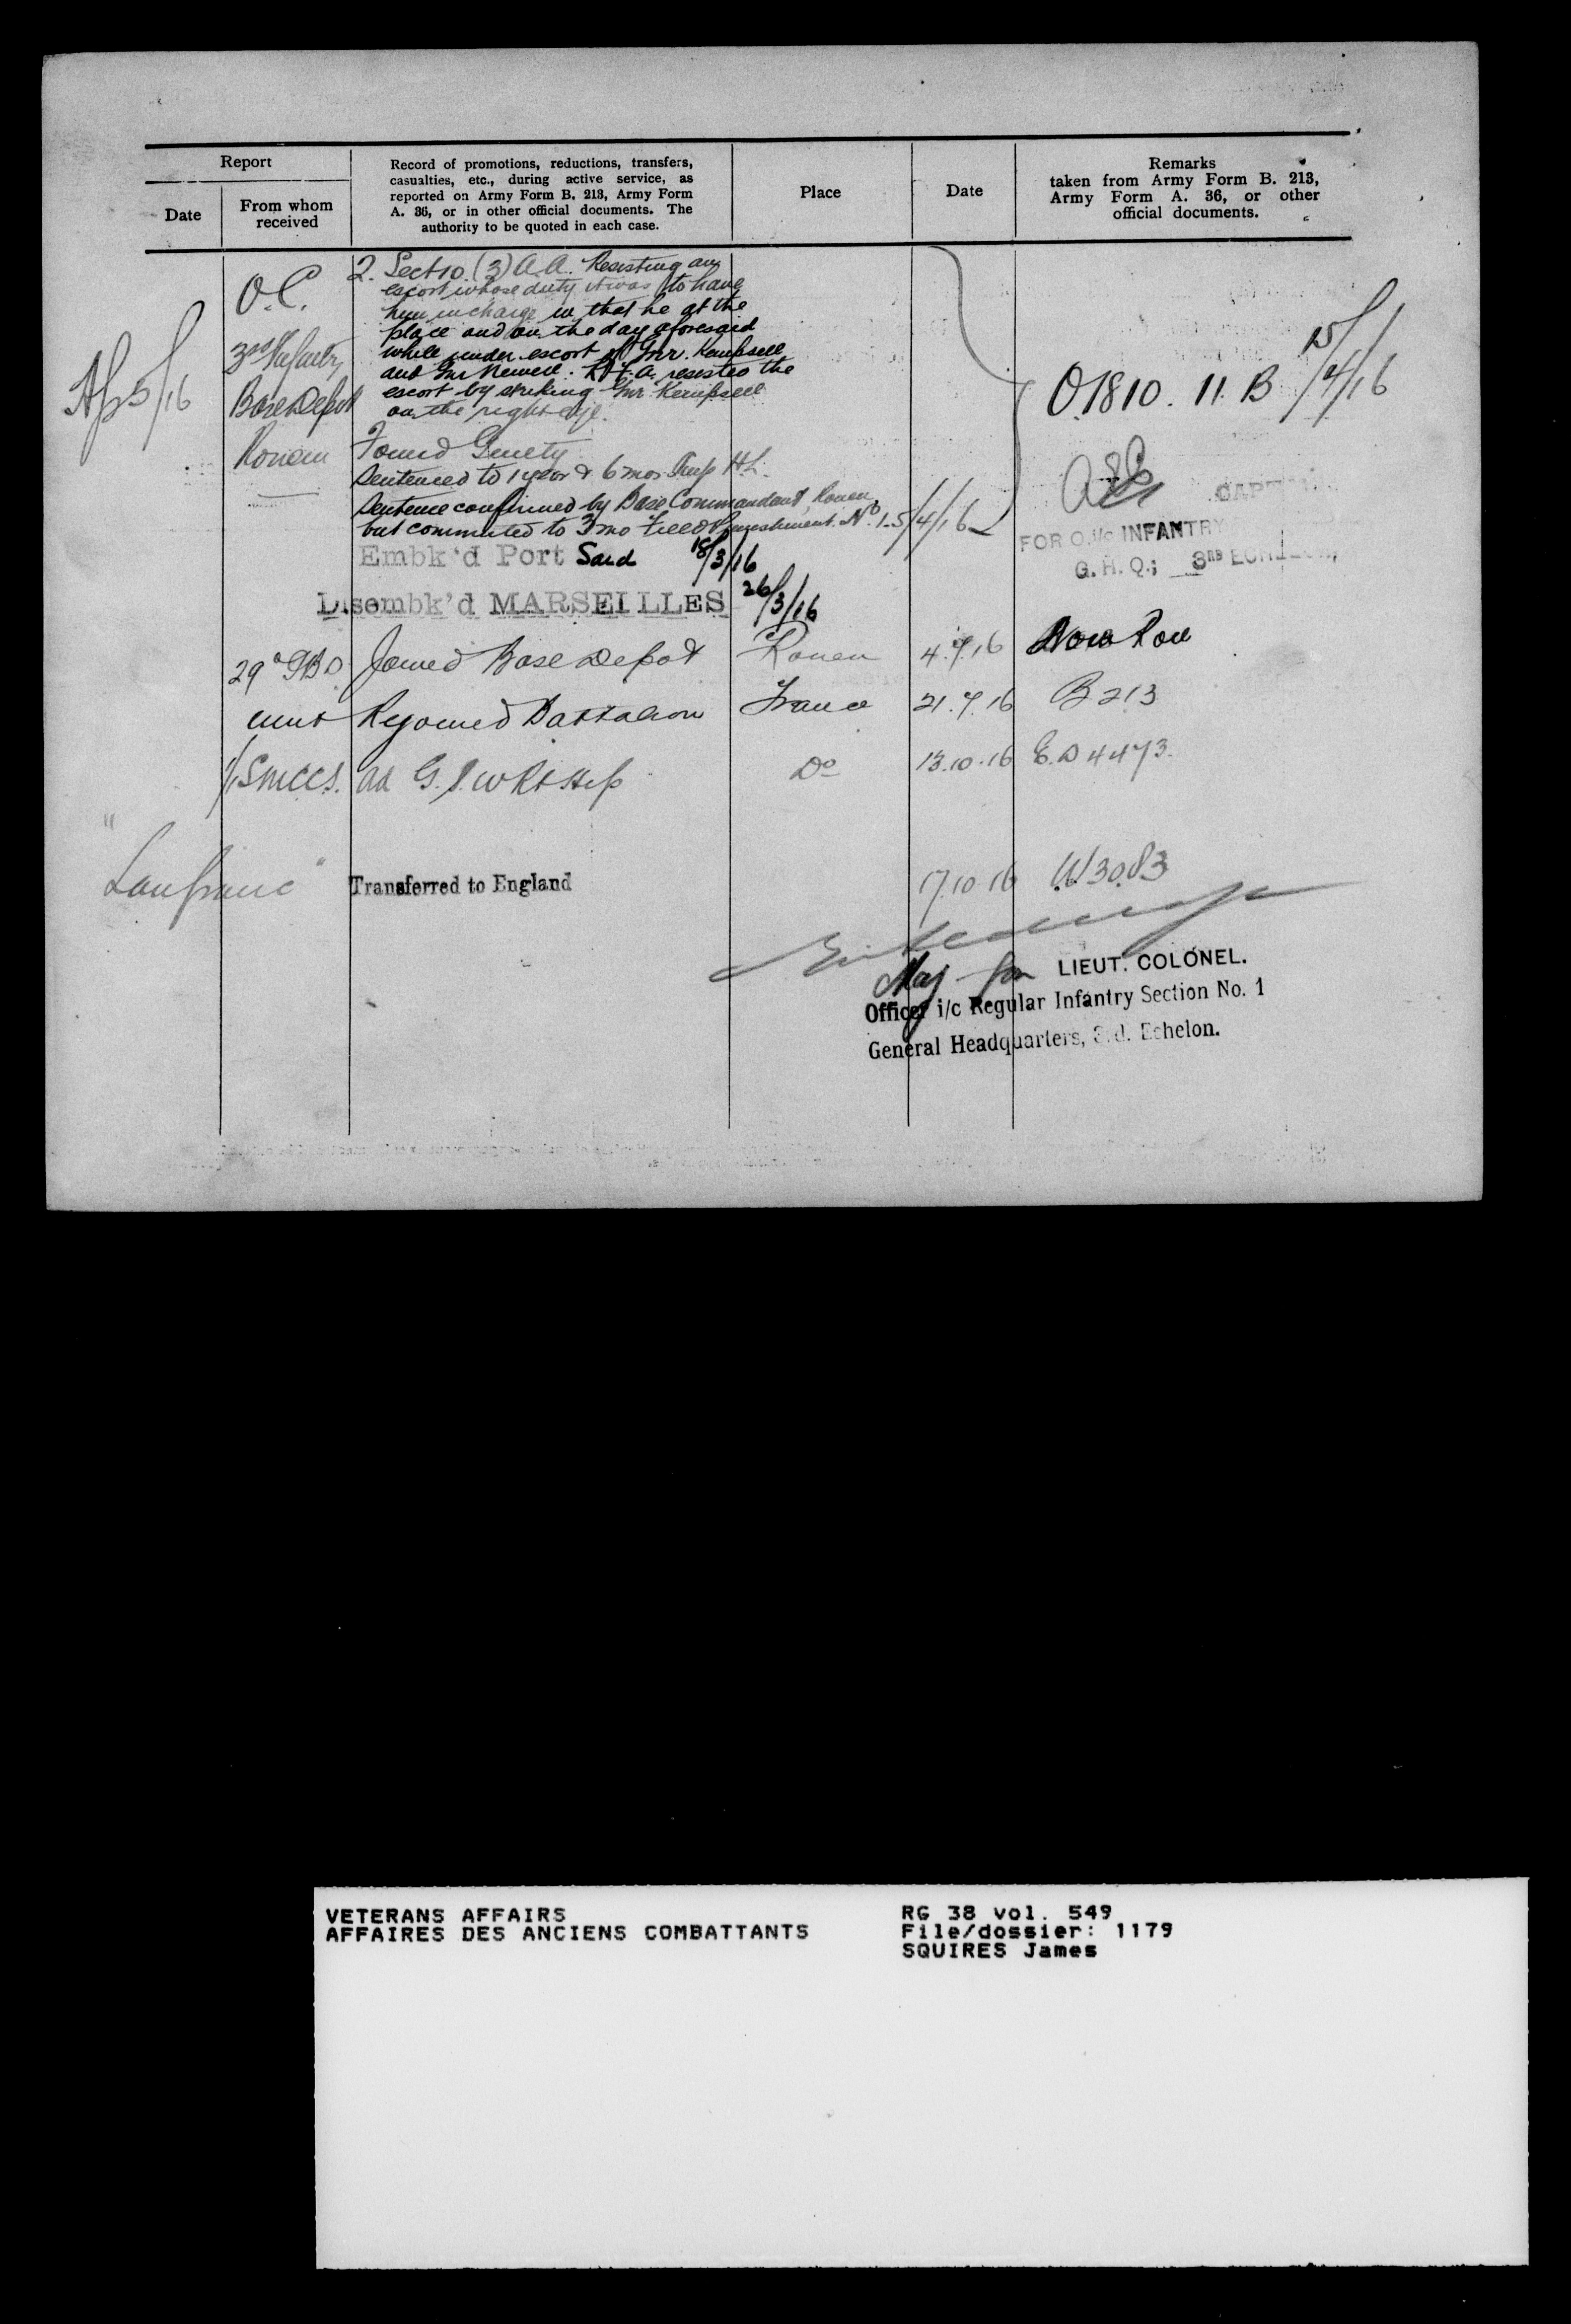 Report
Date
From whom
received
Record of promotions, reductions, transfers,
casualties, etc., during active service, as
reported on Army Form B. 213, Army Form
A. 36, or in other official documents. The
authority to be quoted in each case.
Place
Date
Remarks
taken from Army Form B. 213,
Army Form A. 36, or other
official documents.
Ap 5/16
O.C.
3rd Infantry
Base Depot
Rouen
2. Sect 10 (3) A.A. Resisting an
escort whose duty it was to have
him in charge in that he at the
place and on the day aforesaid
while under escort of Gnr. Kempsell
and Gnr Newell. R.F.A. resisted the
escort by striking Gnr Kempsell
on the right eye.
Found Guilty
Sentenced to 1 year & 6 mos Imp H.L.
Sentence confirmed by Base Commandant, Rouen,
but commuted to 3 mo Field Punishment No. 1 5/4/16
O1810. 11. B 15/4/16
CAPT
FOR O. i/c INFANTRY
G. H. Q.; 3RD ECHELON,
Embk'd Port Said 18/3/16
Disembk'd MARSEILLES 26/3/16
29 IBD Joined Base Depot Rouen 4.7.16 Nom Roll
unit Rejoined Battalion France 21.7.16 B 213
1/1 SMCCS. ad G.S.W Rt Hip Do 13.10.16 E.D 4473.
"Lanfranc" Transferred to England 17.10.16 W3083
Maj for LIEUT. COLONEL.
Officer i/c Regular Infantry Section No. 1
General Headquarters, 3rd. Echelon.
VETERANS AFFAIRS
AFFAIRES DES ANCIENS COMBATTANTS
RG 38 vol. 549
File/dossier: 1179
SQUIRES James